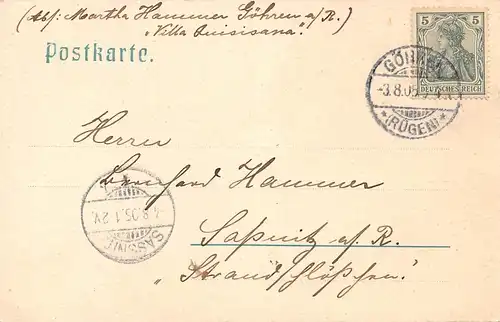 (Abs: Martha Hammer Göhren a/R.)
"Villa Quisisana".
Postkarte.
5 5
DEUTSCHES REICH
GÖHREN
-3.8.05
*(RÜGEN)*
Herrn
Bernhard Hammer
Saßnitz a/R.
"Strandschlößchen".
SASSNITZ
4.8.05.1-2V.